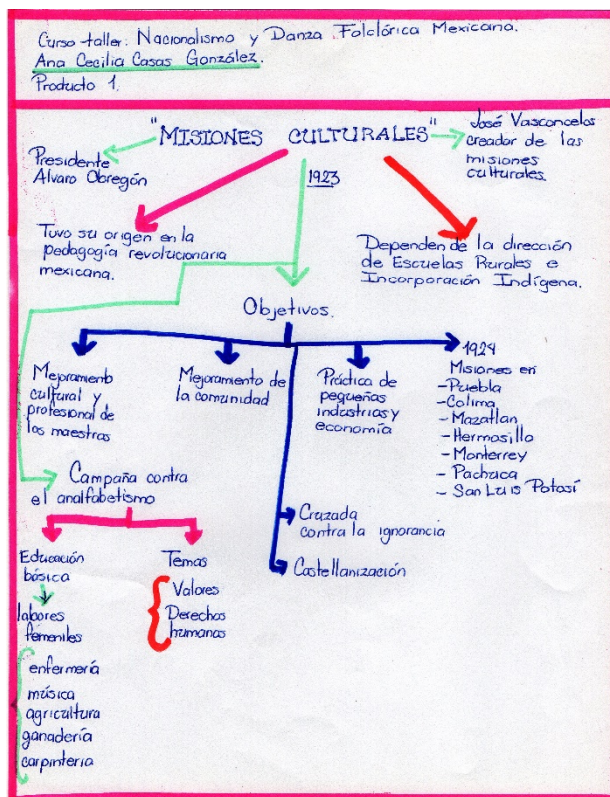 Curso-taller: Nacionalismo y Danza Folclórica Mexicana.
Ana Cecilia Casas González.
Producto 1.
"MISIONES CULTURALES"
José Vasconcelos
creador de las
misiones
culturales.
Presidente
Alvaro Obregón
1923
Tuvo su origen en la
pedagogía revolucionaria
mexicana.
Dependen de la dirección
de Escuelas Rurales e
Incorporación Indígena.
Objetivos.
Mejoramiento
cultural y
profesional de
los maestros
Mejoramiento de
la comunidad
Práctica de
pequeñas
industrias y
economía
1924
Misiones en
-Puebla
-Colima
-Mazatlan
-Hermosillo
-Monterrey
-Pachuca
-San Luis Potosí
Campaña contra
el analfabetismo
Cruzada
contra la ignorancia
Castellanización
Educación
básica
labores
femeniles
enfermería
música
agricultura
ganadería
carpintería
Temas
Valores
Derechos
humanos